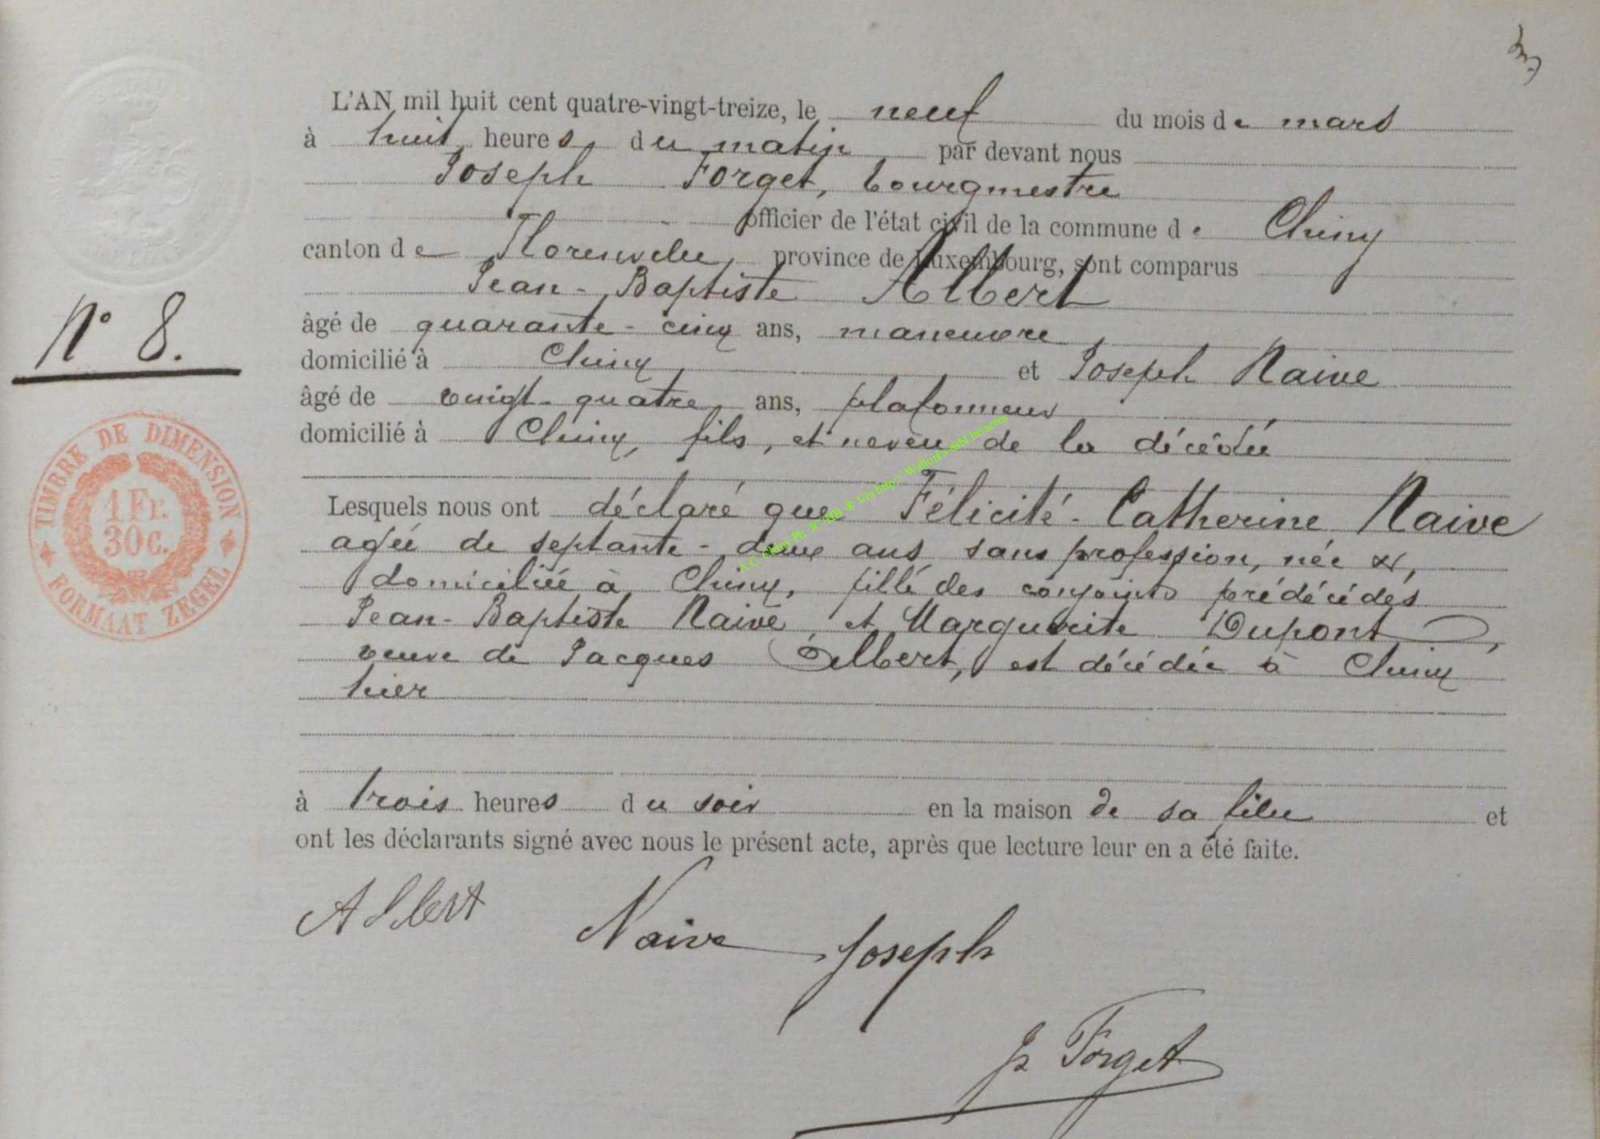 L'AN mil huit cent quatre-vingt-treize, le neuf du mois de mars
à huit heures, du matin par devant nous
Joseph Forget, bourgmestre
officier de l'état civil de la commune de Chiny
canton de Florenville, province de Luxembourg, sont comparus
Jean-Baptiste Albert
âgé de quarante-cinq ans, manœuvre
domicilié à Chiny et Joseph Naive
âgé de vingt-quatre ans, plafonneur
domicilié à Chiny, fils, et neveu de la décédée
Lesquels nous ont déclaré que Félicité-Catherine Naive
agée de septante-deux ans sans profession, née &,
domiciliée à Chiny, fille des conjoints prédécédés
Jean-Baptiste Naive, et Marguerite Dupont,
veuve de Jacques Albert, est décédée à Chiny
hier
à trois heures du soir en la maison de sa fille et
ont les déclarants signé avec nous le présent acte, après que lecture leur en a été faite.
Albert Naive Joseph
Js Forget
N° 8.
TIMBRE DE DIMENSION
1 Fr.
30 C.
FORMAAT ZEGEL